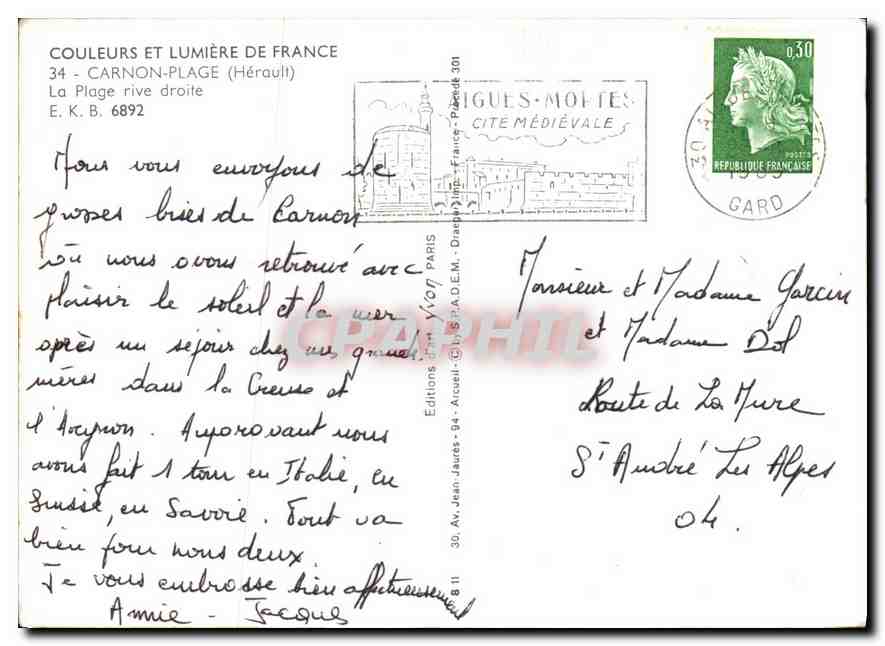 COULEURS ET LUMIÈRE DE FRANCE
34 - CARNON-PLAGE (Hérault)
La Plage rive droite
E. K. B. 6892
Nous vous envoyons de
grosses bises de Carnon
où nous avons retrouvé avec
plaisir le soleil et la mer
après un séjour chez nos grands
mères dans la Creuse et
l'Aveyron. Auparavant nous
avons fait 1 tour en Italie, en
Suisse, en Savoie. Tout va
bien pour nous deux.
Je vous embrasse bien affectueusement
Annie - Jacques
Editions d'art Yvon PARIS
30, Av. Jean-Jaurès - 94 - Arcueil - © by S.P.A.D.E.M. - Draeger Imp. - France - Précédé 301
B 11
AIGUES-MORTES
CITÉ MÉDIÉVALE
0,30
POSTES
REPUBLIQUE FRANÇAISE
30
GARD
Monsieur et Madame Garcin
et Madame Dol
Route de La Mure
St André Les Alpes
04.
CPAPHIL